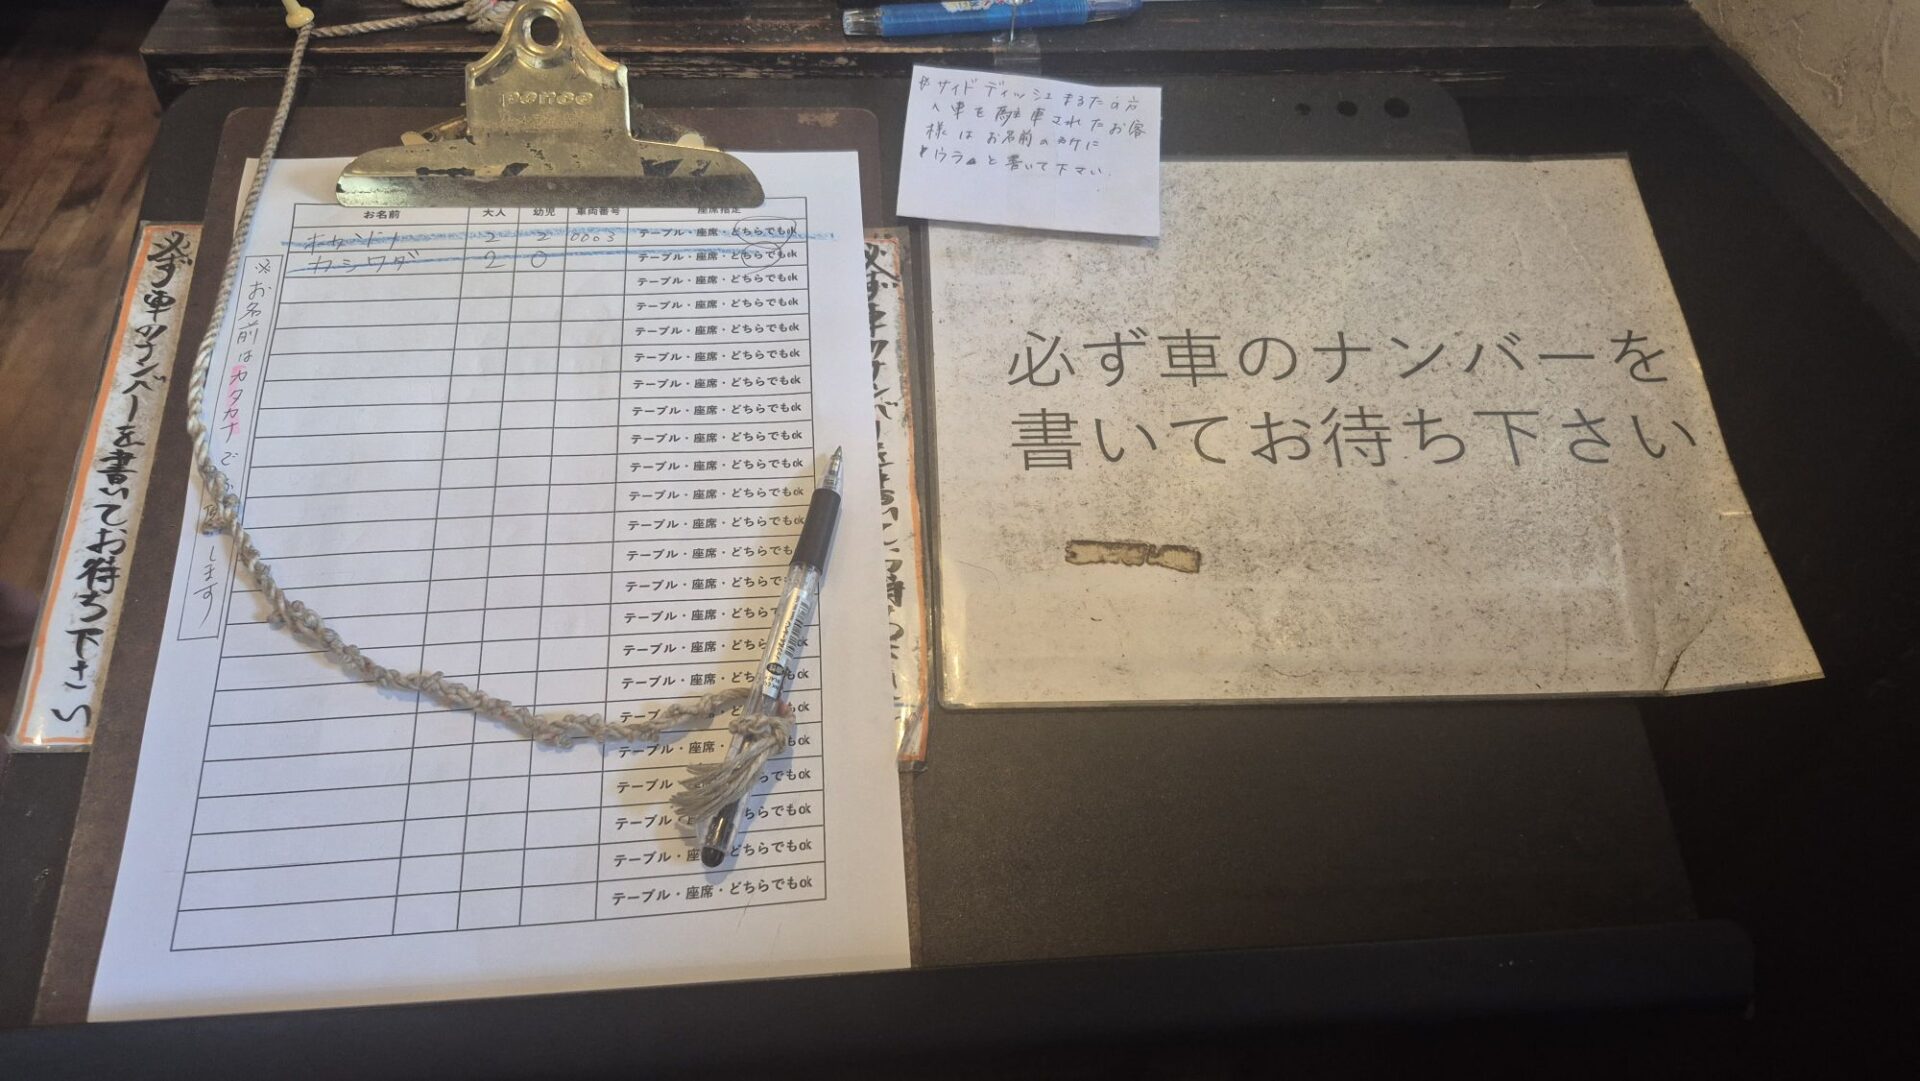 penco
お名前 大人 幼児 車両番号 座席指定
2 2 0003 テーブル・座席・どちらでもok
カシワダ 2 0 テーブル・座席・どちらでもok
テーブル・座席・どちらでもok
テーブル・座席・どちらでもok
テーブル・座席・どちらでもok
テーブル・座席・どちらでもok
テーブル・座席・どちらでもok
テーブル・座席・どちらでもok
テーブル・座席・どちらでもok
テーブル・座席・どちらでもok
テーブル・座席・どちらでもok
テーブル・座席・どちらでもok
テーブル・座席・どちらでも
テーブル・座席・どちらで
テーブル・座席・どちら
テーブル・座席・どちら
テーブル・座席・どちら ok
テーブル ok
テーブル・座席・ もok
テーブル でもok
テーブル ちらでもok
テーブル・座 どちらでもok
テーブル・座席・どちらでもok
※お名前はカタカナで します
必ず車のナンバーを書いてお待ち下さい
※サイドディッシュ
車を駐車されたお客
様はお名前の
ウラ と書いて下さい
必ず車のナンバーを
書いてお待ち下さい